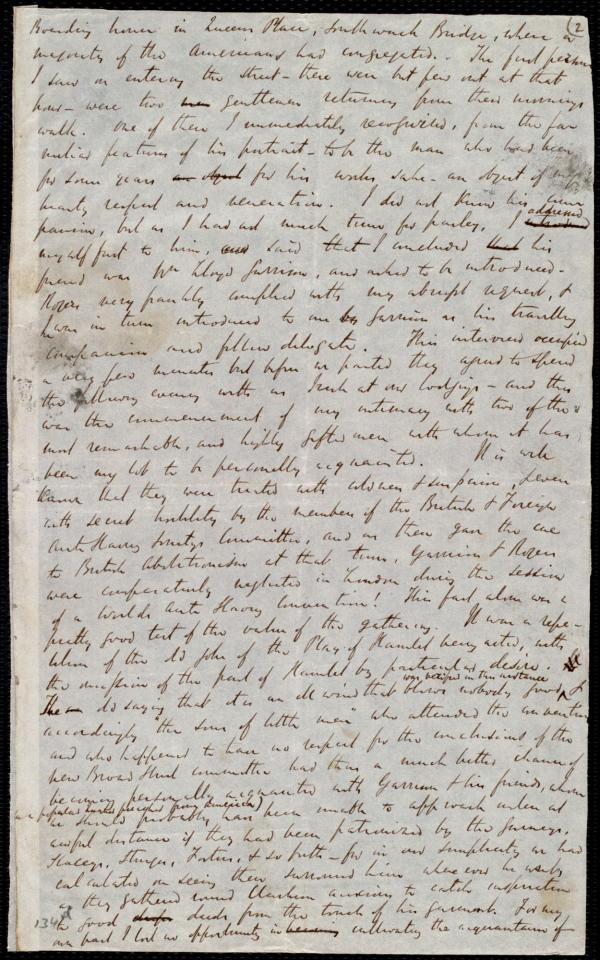 (2
Boarding house in Queens Place, Southwark Bridge, where a
majority of the Americans had congregated. The first persons
I saw on entering the street - there were but few out at that
hour - were two gentlemen returning from their mornings
walk. One of them I immediately recognized, from the fa-
miliar features of his portrait - to be the man who had been
for some years an object for his works sake - an object of my
hearty respect and veneration. I did not know his com-
panion, but as I had not much time for parley, I addressed
myself first to him, and said that I concluded that his
friend was Wm Lloyd Garrison, and asked to be introduced -
Rogers very frankly complied with my abrupt request, &
he was in turn introduced to me by Garrison as his travelling
companion and fellow delegate. This interview occupied
a very few minutes but before we parted they agreed to spend
the following evening with us Irish at our lodgings - and this
was the commencement of my intimacy with two of the
most remarkable, and highly gifted men with whom it has
been my lot to be personally acquainted. It is well
known that they were treated with coldness & suspicion, & even
with secret hostility by the members of the British & Foreign
Anti Slavery Society's Committee, and as these gave the cue
to British abolitionism at that time, Garrison & Rogers
were comparatively neglected in London during the session
of a Worlds Anti Slavery Convention! This fact alone was a
pretty good test of the value of the gathering. It was a repe-
tition of the old joke of the Play of Hamlet being acted, with
the omission of the part of Hamlet by particular desire. The
old saying that it is an ill wind that blows nobody good was verified in this instance &
accordingly "the sons of little men" who attended the convention
and who happened to have no respect for the conclusions of the
New Broad Street committee had thus a much better chance of
becoming personally acquainted with Garrison & his friends, whom
as popular (just arrived from America)
he should probably have been unable to approach unless at
awful distance if they had been patronized by the Gurneys,
Staceys, Sturges, Forsters, & so forth - for in our simplicity we had
calculated on seeing them surround him wherever he went
as they gathered round Clarkson anxious to catch inspiration
to good deeds from the touch of his garment. For my
own part I lost no opportunity in cultivating the acquaintance of